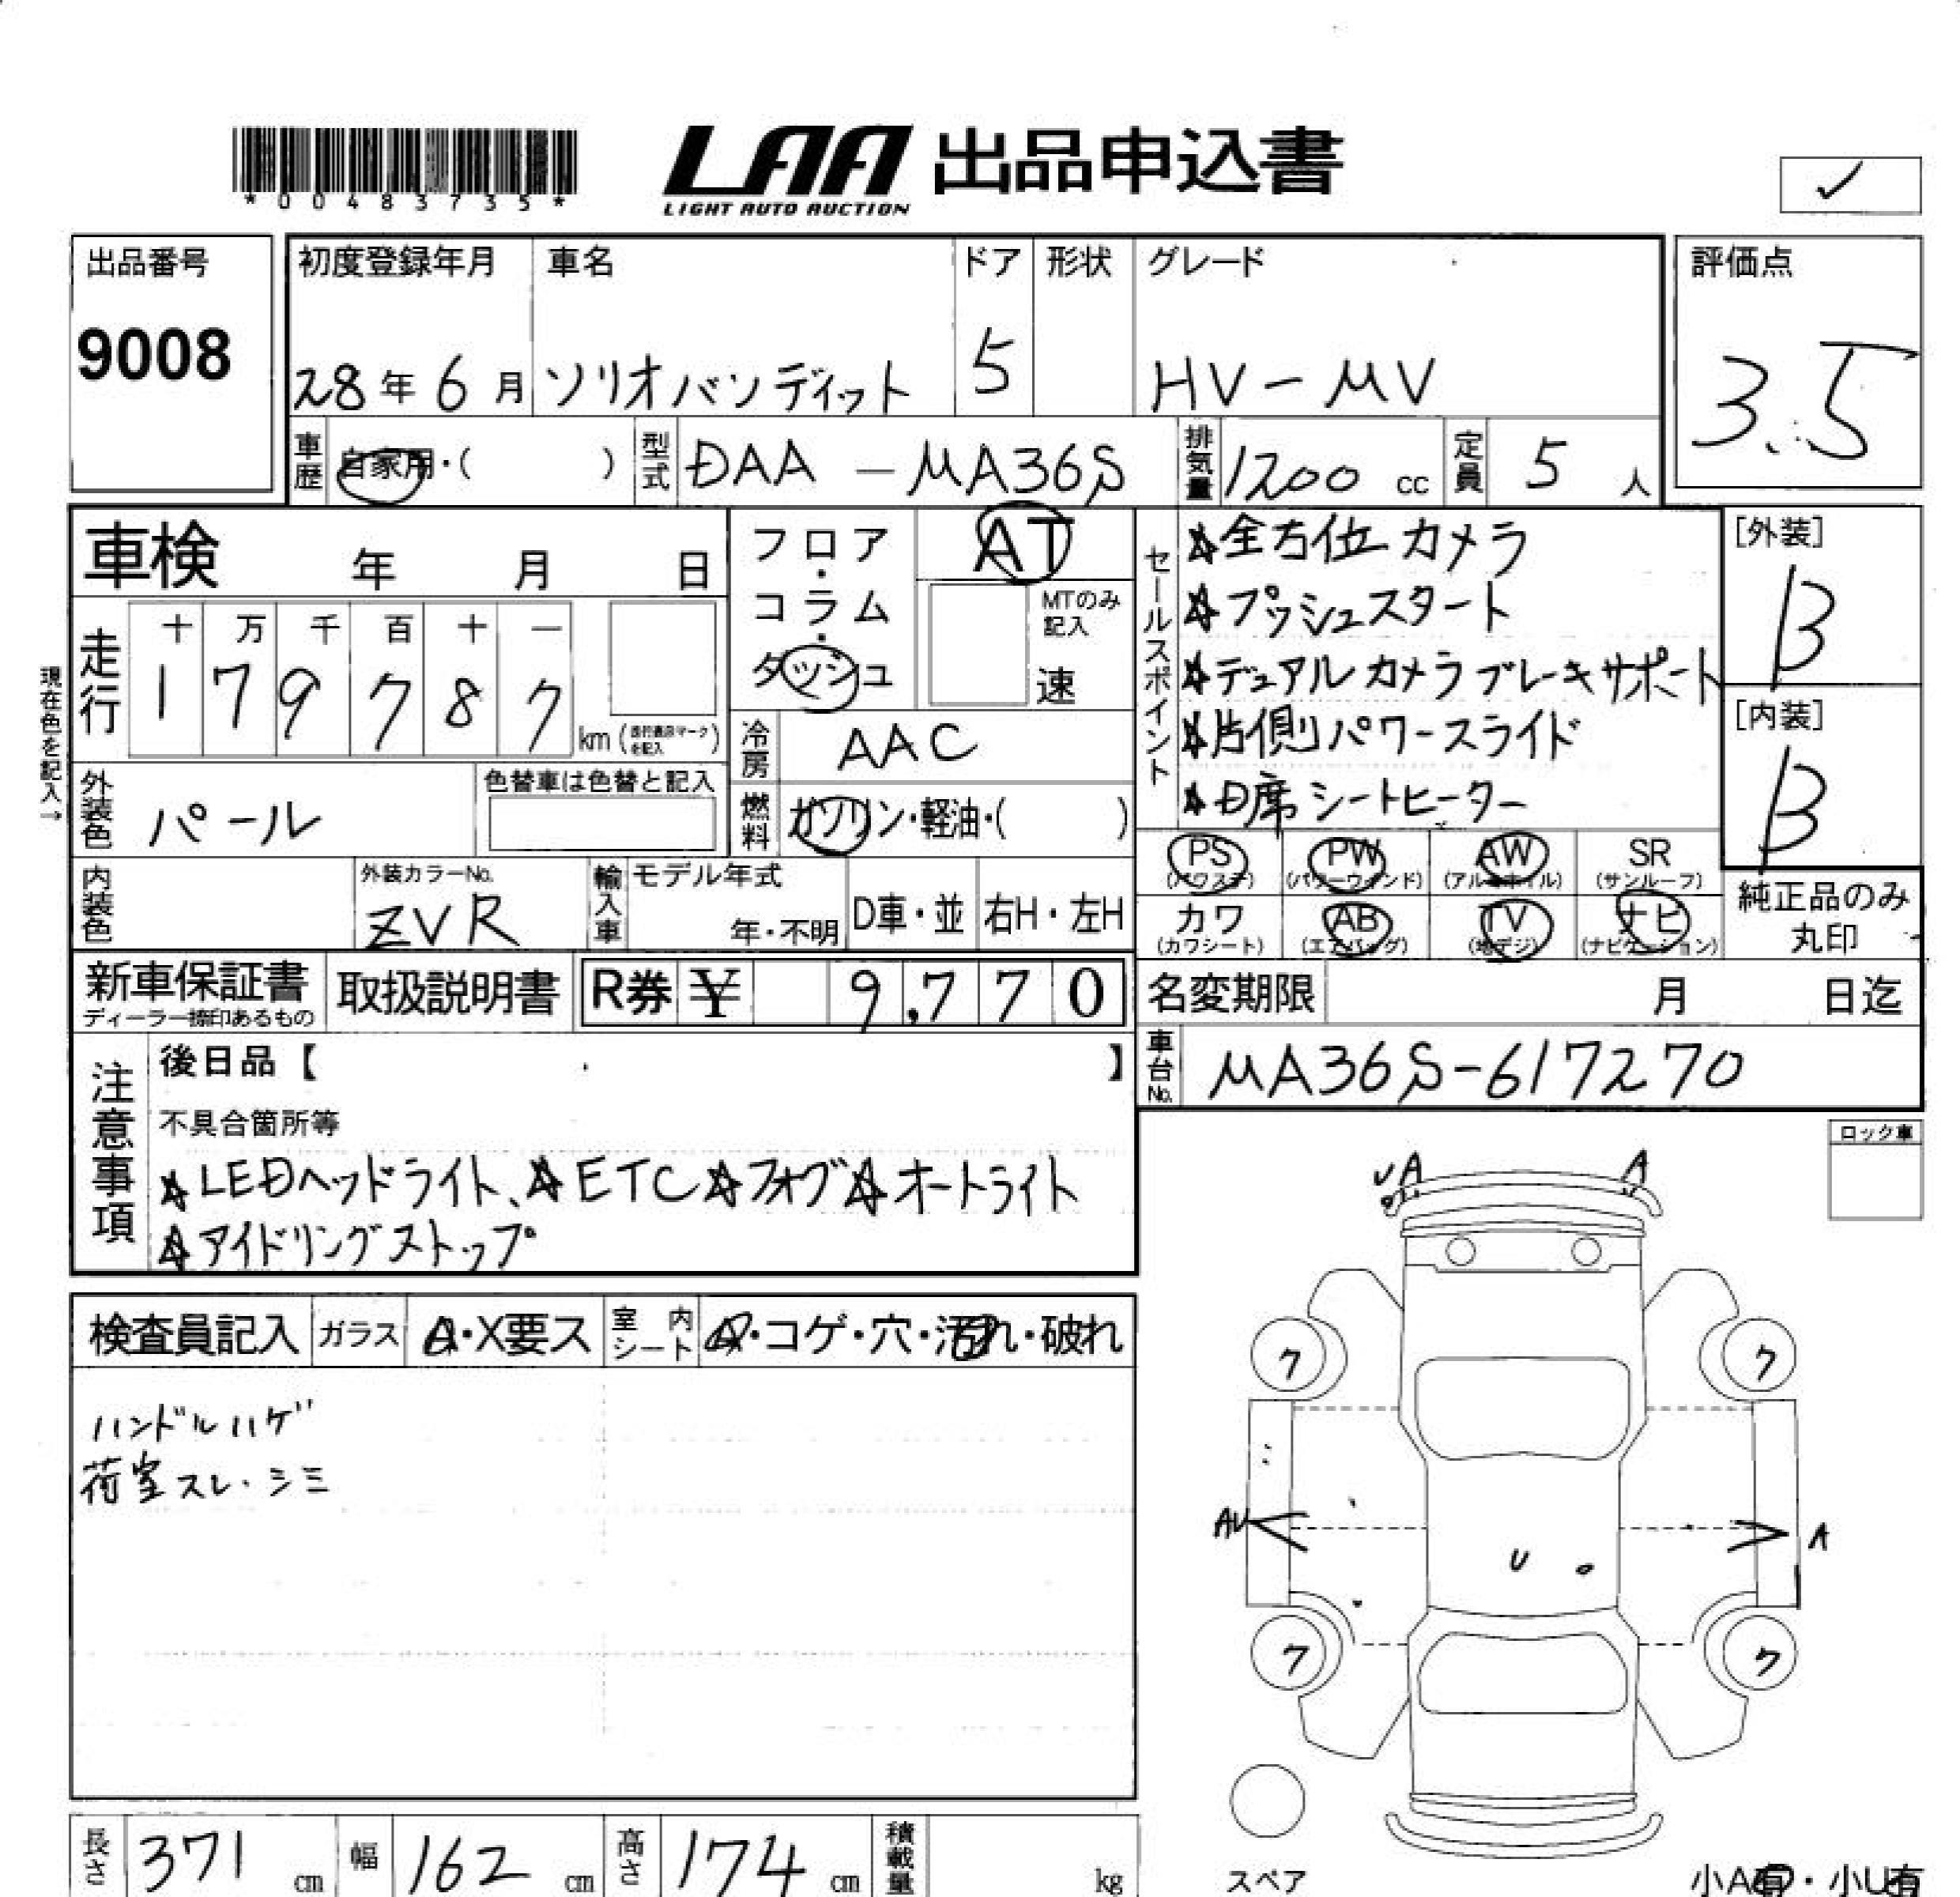 *00483735*
LAA 出品申込書
LIGHT AUTO AUCTION
✓
出品番号
9008
初度登録年月 車名 ドア 形状 グレード
28年6月 ソリオバンディット 5 HV-MV
評価点
3.5
車歴 自家用・( ) 型式 DAA-MA36S 排気量 1200 cc 定員 5 人
車検 年 月 日
フロア・コラム・ダッシュ
AT
MTのみ記入
速
セールスポイント
☆全方位カメラ
☆プッシュスタート
☆デュアルカメラブレーキサポート
☆片側パワースライド
☆D席シートヒーター
[外装]
B
[内装]
B
現在色を記入→
走行 十 万 千 百 十 一
1 7 9 7 8 7 km
冷房 AAC
外装色 パール
色替車は色替と記入
燃料 ガソリン・軽油・( )
内装色
外装カラーNo.
ZVR
輸入車 モデル年式
年・不明 D車・並 右H・左H
PS PW AW SR
(パワステ) (パワーウィンド) (アルミホイル) (サンルーフ)
カワ AB TV ナビ
(カワシート) (エアバッグ) (地デジ) (ナビゲーション)
純正品のみ
丸印
新車保証書 取扱説明書 R券 ¥ 9,770
ディーラー捺印あるもの
名変期限 月 日迄
車台No. MA36S-617270
注意事項
後日品【 】
不具合箇所等
☆LEDヘッドライト、☆ETC☆フォグ☆オートライト
☆アイドリングストップ
ロック車
検査員記入 ガラス A・X要ス 室内シート A・コゲ・穴・汚れ・破れ
ハンドルハゲ
荷室スレ・シミ
UA A
ク ク
AU A
U
ク ク
スペア
小A有・小U有
長さ 371 cm 幅 162 cm 高さ 174 cm 積載量 kg